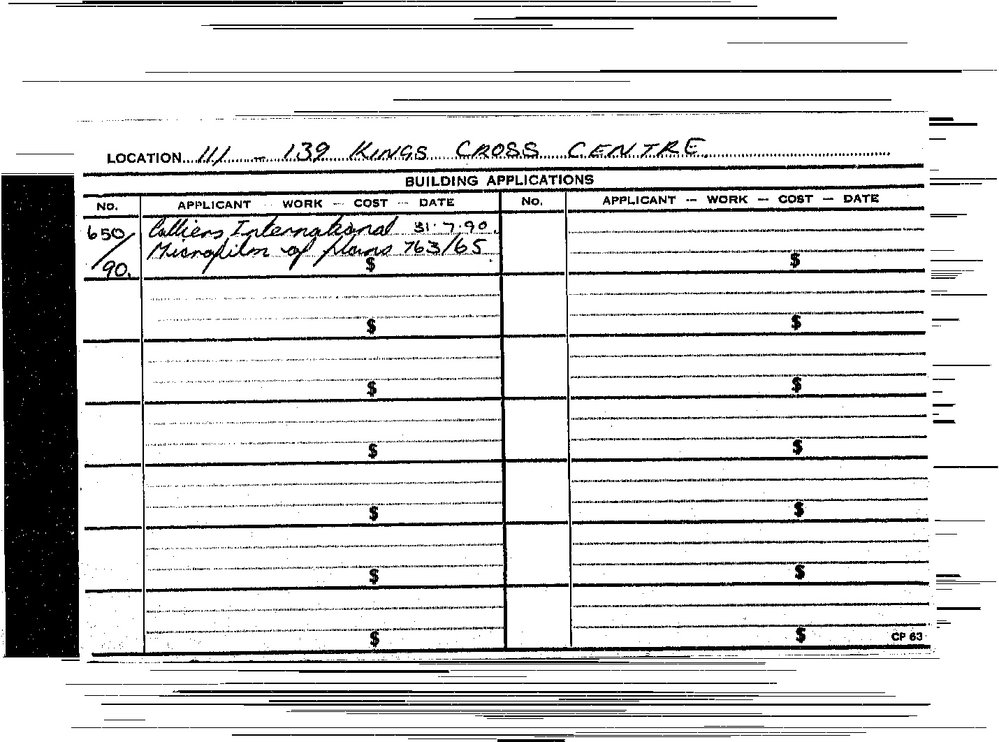 LOCATION 111 - 139 KINGS CROSS CENTRE
BUILDING APPLICATIONS
No. APPLICANT - WORK - COST - DATE No. APPLICANT - WORK - COST - DATE
650/90. Colliers International 31.7.90.
Microfilm of plans 763/65
$ $
$ $
$ $
$ $
$ $
$ $
$ $
CP 63